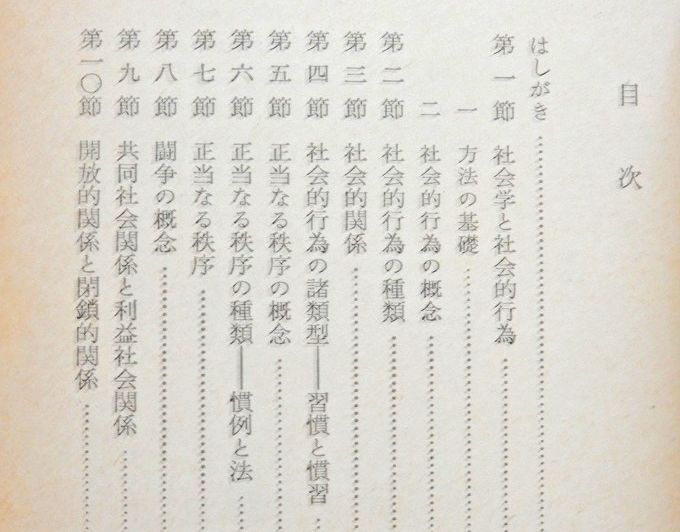 目次
はしがき
第一節 社会学と社会的行為
一 方法の基礎
二 社会的行為の概念
第二節 社会的行為の種類
第三節 社会的関係
第四節 社会的行為の諸類型――習慣と慣習
第五節 正当なる秩序の概念
第六節 正当なる秩序の種類――慣例と法
第七節 正当なる秩序
第八節 闘争の概念
第九節 共同社会関係と利益社会関係
第一〇節 開放的関係と閉鎖的関係